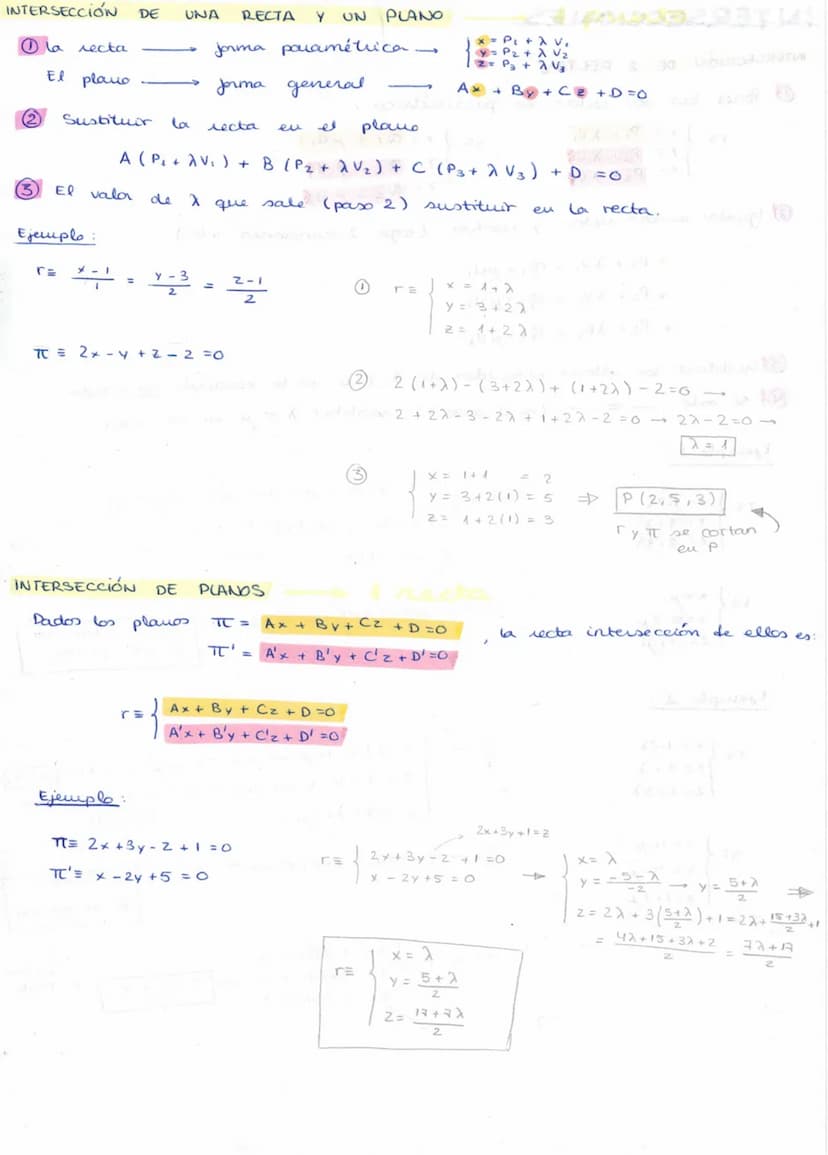 INTERSECCIÓN DE UNA RECTA Y UN PLANO
① la recta ⟶ forma paramétrica → { x = P₁ + λ V₁
y = P₂ + λ V₂
z = P₃ + λ V₃
El plano ⟶ forma general ⟶ Ax + By + Cz + D = 0
② Sustituir la recta en el plano
A (P₁ + λV₁) + B (P₂ + λV₂) + C (P₃ + λV₃) + D = 0
③ El valor de λ que sale (paso 2) sustituir en la recta.
Ejemplo:
r ≡ (x - 1)/1 = (y - 3)/2 = (z - 1)/2
① r ≡ { x = 1 + λ
y = 3 + 2λ
z = 1 + 2λ
π ≡ 2x - y + z - 2 = 0
② 2 (1+λ) - (3+2λ) + (1+2λ) - 2 = 0 →
2 + 2λ - 3 - 2λ + 1 + 2λ - 2 = 0 → 2λ - 2 = 0 →
λ = 1
③ { x = 1 + 1 = 2
y = 3 + 2(1) = 5 ⇒ P (2, 5, 3)
z = 1 + 2(1) = 3
r y π se cortan
en P
INTERSECCIÓN DE PLANOS
Dados los planos π = Ax + By + Cz + D = 0
, la recta intersección de ellos es:
π' = A'x + B'y + C'z + D' = 0
r ≡ { Ax + By + Cz + D = 0
A'x + B'y + C'z + D' = 0
Ejemplo:
π ≡ 2x + 3y - z + 1 = 0
π' ≡ x - 2y + 5 = 0
2x + 3y + 1 = z
r ≡ { 2x + 3y - z + 1 = 0
x - 2y + 5 = 0
→ { x = λ
y = (-5 - λ)/-2 → y = (5 + λ)/2 ⇒
z = 2λ + 3((5+λ)/2) + 1 = 2λ + (15+3λ)/2 + 1
= (4λ + 15 + 3λ + 2)/2 = (7λ + 17)/2
r ≡ { x = λ
y = (5 + λ)/2
z = (17 + 7λ)/2